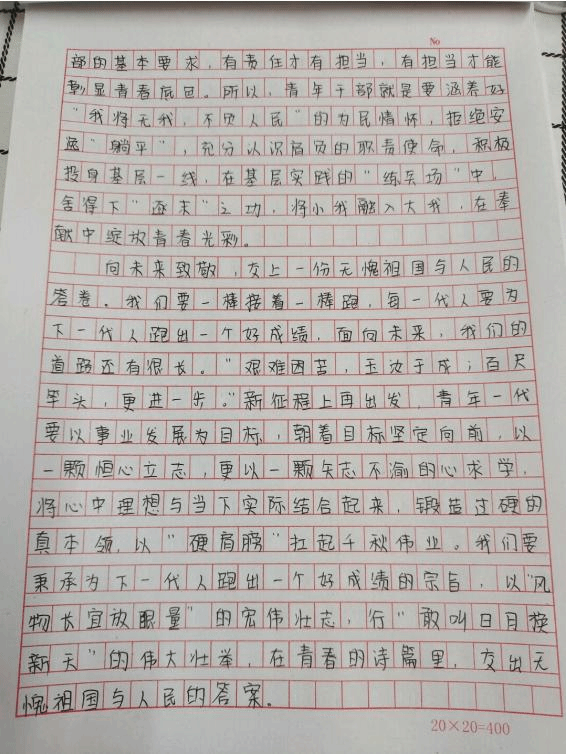 No
部的基本要求，有责任才有担当，有担当才能
彰显青春底色。所以，青年干部就是要涵养好
“我将无我，不负人民”的为民情怀，拒绝安
逸“躺平”，充分认识肩负的职责使命，积极
投身基层一线，在基层实践的“练兵场”中，
舍得下“逐末”之功，将小我融入大我，在奉
献中绽放青春光彩。
向未来致敬，交上一份无愧祖国与人民的
答卷。我们要一棒接着一棒跑，每一代人要为
下一代人跑出一个好成绩，面向未来，我们的
道路还有很长。“艰难困苦，玉汝于成；百尺
竿头，更进一步。”新征程上再出发，青年一代
要以事业发展为目标，朝着目标坚定向前，以
一颗恒心立志，更以一颗矢志不渝的心求学，
将心中理想与当下实际结合起来，锻造过硬的
真本领，以“硬肩膀”扛起千秋伟业。我们要
秉承为下一代人跑出一个好成绩的宗旨，以“风
物长宜放眼量”的宏伟壮志，行“敢叫日月换
新天”的伟大壮举，在青春的诗篇里，交出无
愧祖国与人民的答案。
20×20=400